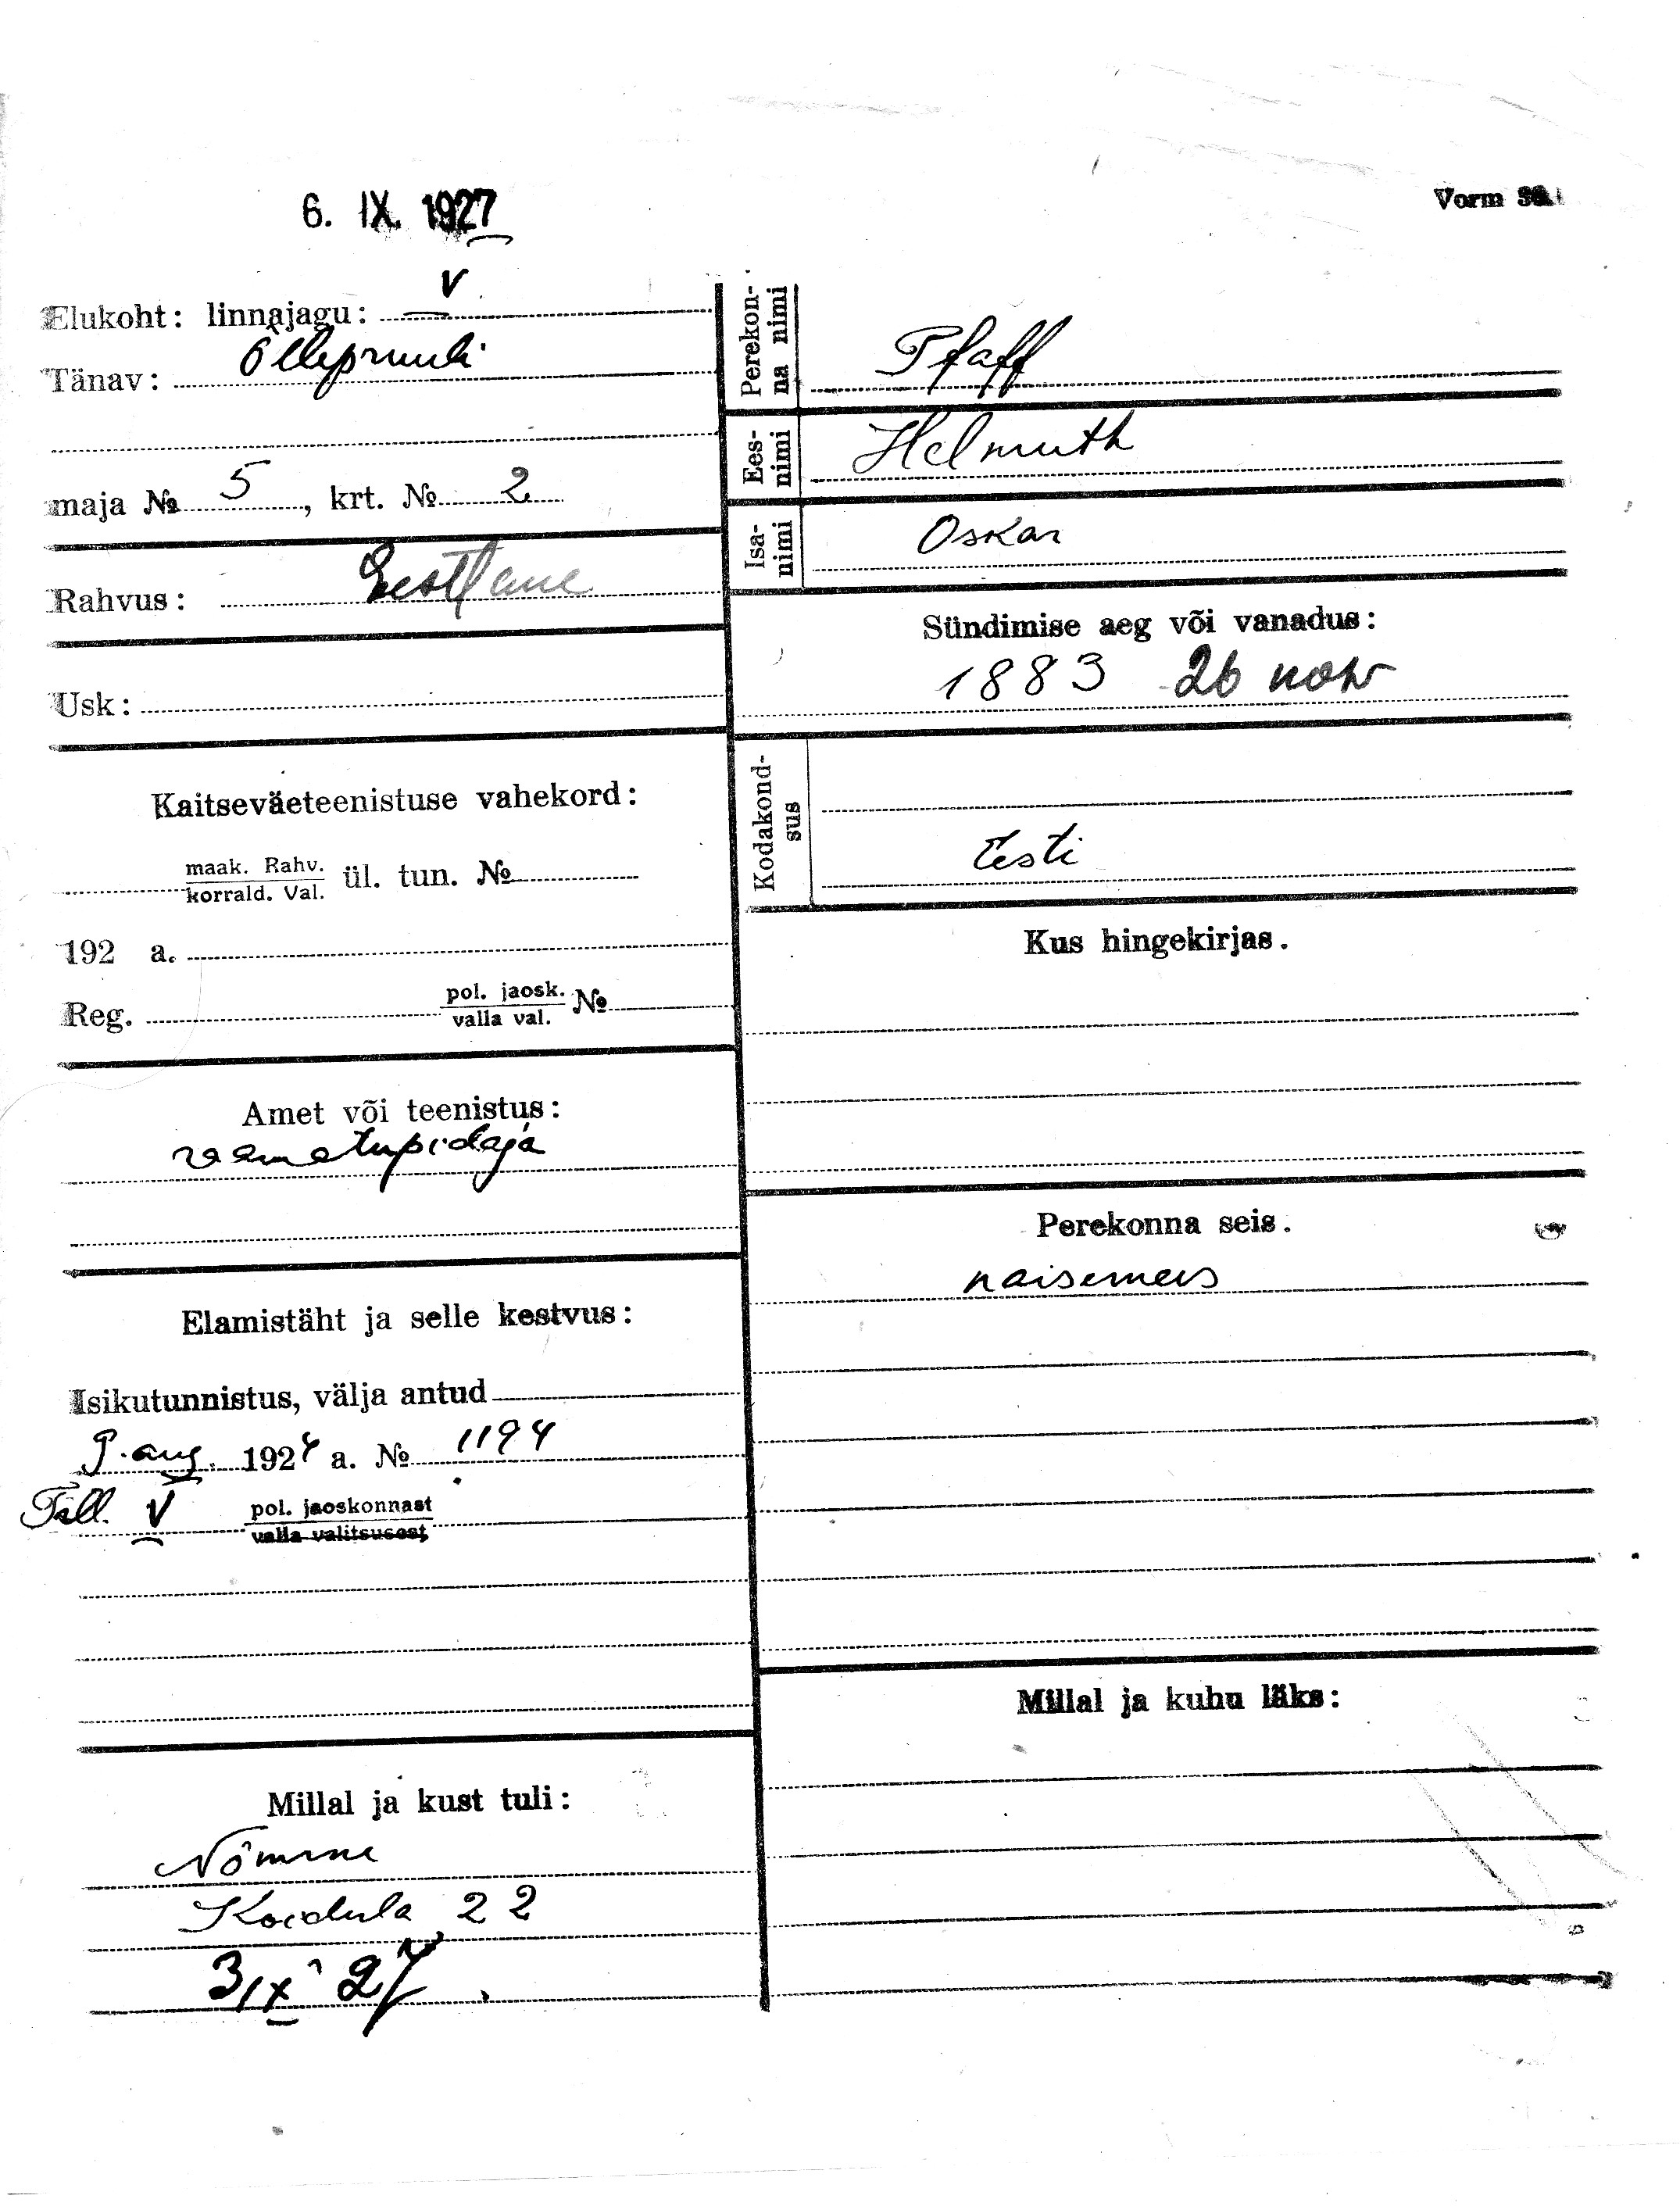 6. IX. 1927
Vorm
Elukoht: linnajagu: V
Tänav: Õllepruuli
maja № 5, krt. № 2
Rahvus: Eestlane
Usk:
Kaitseväeteenistuse vahekord:
maak. Rahv.
korrald. Val. ül. tun. №
192 a.
Reg. pol. jaosk.
valla val. №
Amet või teenistus:
raamatupidaja
Elamistäht ja selle kestvus:
Isikutunnistus, välja antud
9. aug. 1924 a. № 1194
Tall. V pol. jaoskonnast
valla valitsusest
Millal ja kust tuli:
Nõmme
Koidula 22
3/IX 27
Perekon-
na nimi
Pfaff
Ees-
nimi
Helmuth
Isa-
nimi
Oskar
Sündimise aeg või vanadus:
1883 26 nov
Kodakond-
sus
Eesti
Kus hingekirjas.
Perekonna seis.
naisemees
Millal ja kuhu läks: